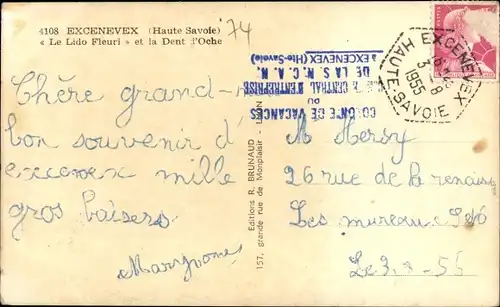 4108 EXCENEVEX (Haute Savoie)
« Le Lido Fleuri » et la Dent d'Oche
74
Chère grand-
bon souvenir d'
excenex mille
gros baisers
COLONIE DE VACANCES
DU
CENTRAL D'ENTREPRISE
DE LA S.N.C.A.N.
à EXCENEVEX (Hte-Savoie)
Editions R. BRUNAUD -
157, grande rue de Monplaisir -
EXCENEVEX
3-8
1955
HAUTE-SAVOIE
M Hersy
26 rue de la renais
Les mureaux
Le 3-8-55